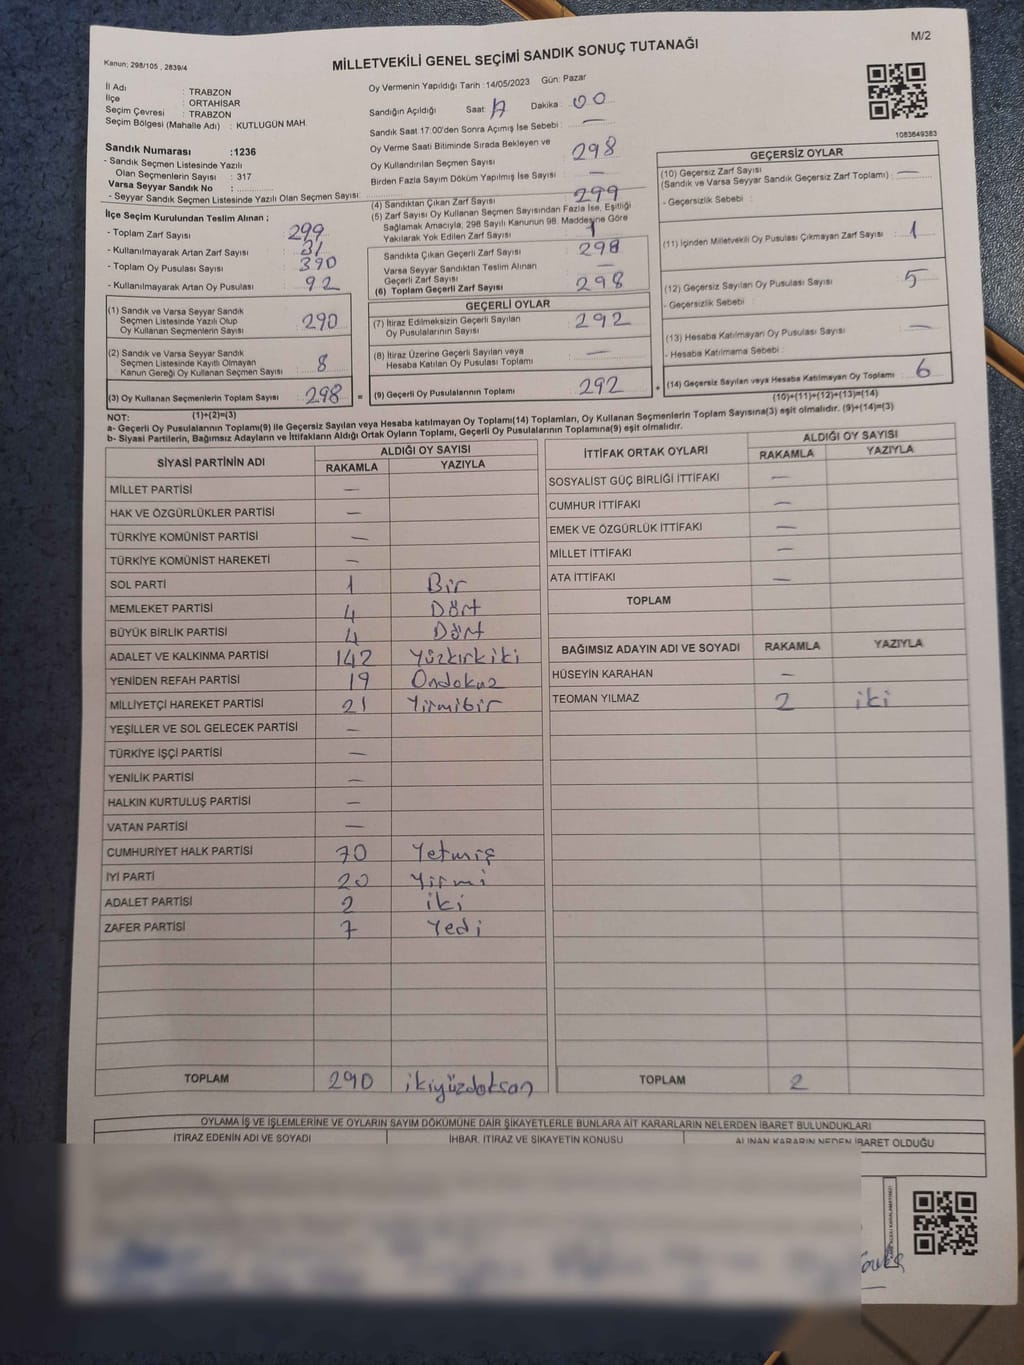 M/2
MİLLETVEKİLİ GENEL SEÇİMİ SANDIK SONUÇ TUTANAĞI
Kanun; 298/105 , 2839/4
İl Adı : TRABZON
İlçe : ORTAHİSAR
Seçim Çevresi : TRABZON
Seçim Bölgesi (Mahalle Adı) : KUTLUGÜN MAH.
Oy Vermenin Yapıldığı Tarih : 14/05/2023 Gün: Pazar
Sandığın Açıldığı Saat: 17 Dakika : 00
Sandık Saat 17:00'den Sonra Açımış İse Sebebi : —
Oy Verme Saati Bitiminde Sırada Bekleyen ve
Oy Kullandırılan Seçmen Sayısı : 298
Birden Fazla Sayım Döküm Yapılmış İse Sayısı : —
1083849383
Sandık Numarası :1236
- Sandık Seçmen Listesinde Yazılı
Olan Seçmenlerin Sayısı : 317
Varsa Seyyar Sandık No :
- Seyyar Sandık Seçmen Listesinde Yazılı Olan Seçmen Sayısı:
İlçe Seçim Kurulundan Teslim Alınan ;
- Toplam Zarf Sayısı : 299
- Kullanılmayarak Artan Zarf Sayısı : 31
- Toplam Oy Pusulası Sayısı : 390
- Kullanılmayarak Artan Oy Pusulası : 92
(1) Sandık ve Varsa Seyyar Sandık
Seçmen Listesinde Yazılı Olup
Oy Kullanan Seçmenlerin Sayısı : 290
(2) Sandık ve Varsa Seyyar Sandık
Seçmen Listesinde Kayıtlı Olmayan
Kanun Gereği Oy Kullanan Seçmen Sayısı : 8
(3) Oy Kullanan Seçmenlerin Toplam Sayısı : 298
(1)+(2)=(3)
(4) Sandıktan Çıkan Zarf Sayısı : 299
(5) Zarf Sayısı Oy Kullanan Seçmen Sayısından Fazla İse, Eşitliği
Sağlamak Amacıyla, 298 Sayılı Kanunun 98. Maddesine Göre
Yakılarak Yok Edilen Zarf Sayısı : 1
Sandıkta Çıkan Geçerli Zarf Sayısı : 298
Varsa Seyyar Sandıktan Teslim Alınan
Geçerli Zarf Sayısı : —
(6) Toplam Geçerli Zarf Sayısı : 298
GEÇERLİ OYLAR
(7) İtiraz Edilmeksizin Geçerli Sayılan
Oy Pusulalarının Sayısı : 292
(8) İtiraz Üzerine Geçerli Sayılan veya
Hesaba Katılan Oy Pusulası Toplamı : —
= (9) Geçerli Oy Pusulalarının Toplamı : 292
GEÇERSİZ OYLAR
(10) Geçersiz Zarf Sayısı
(Sandık ve Varsa Seyyar Sandık Geçersiz Zarf Toplamı) : —
- Geçersizlik Sebebi :
(11) İçinden Milletvekili Oy Pusulası Çıkmayan Zarf Sayısı : 1
(12) Geçersiz Sayılan Oy Pusulası Sayısı : 5
- Geçersizlik Sebebi :
(13) Hesaba Katılmayan Oy Pusulası Sayısı : —
- Hesaba Katılmama Sebebi :
+ (14) Geçersiz Sayılan veya Hesaba Katılmayan Oy Toplamı : 6
(10)+(11)+(12)+(13)=(14)
NOT:
a- Geçerli Oy Pusulalarının Toplamı(9) ile Geçersiz Sayılan veya Hesaba katılmayan Oy Toplamı(14) Toplamları, Oy Kullanan Seçmenlerin Toplam Sayısına(3) eşit olmalıdır. (9)+(14)=(3)
b- Siyasi Partilerin, Bağımsız Adayların ve İttifakların Aldığı Ortak Oyların Toplamı, Geçerli Oy Pusulalarının Toplamına(9) eşit olmalıdır.
SİYASİ PARTİNİN ADI ALDIĞI OY SAYISI
RAKAMLA YAZIYLA
MİLLET PARTİSİ —
HAK VE ÖZGÜRLÜKLER PARTİSİ —
TÜRKİYE KOMÜNİST PARTİSİ —
TÜRKİYE KOMÜNİST HAREKETİ —
SOL PARTİ 1 Bir
MEMLEKET PARTİSİ 4 Dört
BÜYÜK BİRLİK PARTİSİ 4 Dört
ADALET VE KALKINMA PARTİSİ 142 Yüzkırkiki
YENİDEN REFAH PARTİSİ 19 Ondokuz
MİLLİYETÇİ HAREKET PARTİSİ 21 Yirmibir
YEŞİLLER VE SOL GELECEK PARTİSİ —
TÜRKİYE İŞÇİ PARTİSİ —
YENİLİK PARTİSİ —
HALKIN KURTULUŞ PARTİSİ —
VATAN PARTİSİ —
CUMHURİYET HALK PARTİSİ 70 Yetmiş
İYİ PARTİ 20 Yirmi
ADALET PARTİSİ 2 iki
ZAFER PARTİSİ 7 Yedi
TOPLAM 290 ikiyüzdoksan
İTTİFAK ORTAK OYLARI ALDIĞI OY SAYISI
RAKAMLA YAZIYLA
SOSYALİST GÜÇ BİRLİĞİ İTTİFAKI —
CUMHUR İTTİFAKI —
EMEK VE ÖZGÜRLÜK İTTİFAKI —
MİLLET İTTİFAKI —
ATA İTTİFAKI —
TOPLAM
BAĞIMSIZ ADAYIN ADI VE SOYADI RAKAMLA YAZIYLA
HÜSEYİN KARAHAN —
TEOMAN YILMAZ 2 iki
TOPLAM 2
OYLAMA İŞ VE İŞLEMLERİNE VE OYLARIN SAYIM DÖKÜMÜNE DAİR ŞİKAYETLERLE BUNLARA AİT KARARLARIN NELERDEN İBARET BULUNDUKLARI
İTİRAZ EDENİN ADI VE SOYADI İHBAR, İTİRAZ VE ŞİKAYETİN KONUSU ALINAN KARARIN NEDEN İBARET OLDUĞU